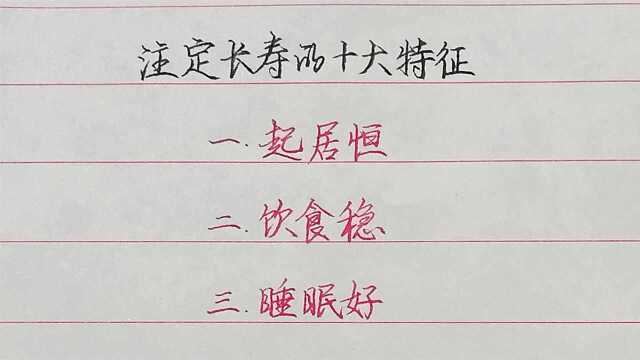 注定长寿的十大特征
一.起居恒
二.饮食稳
三.睡眠好